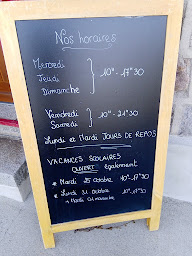 Nos horaires
Mercredi
Jeudi
Dimanche
10h - 17h30
Vendredi
Samedi
10h - 21h30
Lundi et Mardi JOURS DE REPOS
VACANCES SCOLAIRES
OUVERT également
Mardi 25 octobre 10h - 17h30
Lundi 31 octobre 10h - 17h30